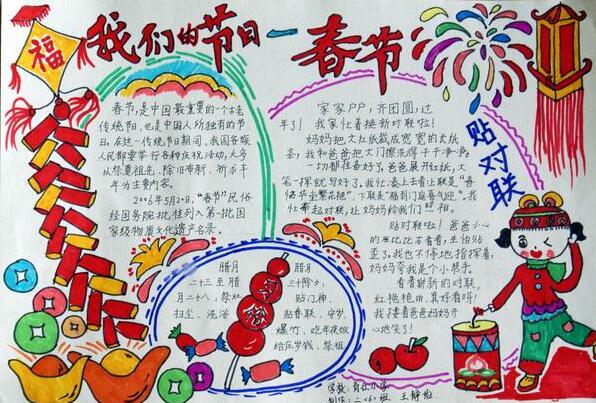 福
我们的节日—春节
春节,是中国最重要的一个古老
传统节日,也是中国人所独有的节
日。在这一传统节日期间,我国各族
人民都要举行各种庆祝活动,大多
以祭奠祖先、除旧布新、祈求丰
年为主要内容。
2006年5月20日,“春节”民俗
经国务院批准列入第一批国
家级物质文化遗产名录。
家家户户,齐团圆,过
年了!我家忙着换新对联啦!
妈妈把大红纸裁成宽宽的长纸
条,我和爸爸把大门擦洗得干干净净,
一切都准备好了,爸爸展开红纸,大
笔一挥就写好了。我忙凑上去看让联是“春
满华堂繁花艳”,下联是“福到门庭喜气迎”。我
忙拿起对联,让妈妈给我们拍照
贴对联
贴对联啦!爸爸小心
的左比比右看看,生怕贴
歪了。我也不停地指挥着,
妈妈夸我是个小帮手。
看着崭新的对联,
红艳艳的,真好看呀!
我搂着爸爸妈妈开
心地笑了!
腊月
二十三至腊
月二十八,祭灶
扫尘、洗浴
腊月
三十除夕:
贴门神、
贴春联、守岁、
爆竹、吃年夜饭
给压岁钱、祭祖
学校:育红小学
制作:二(6)班 王静怡